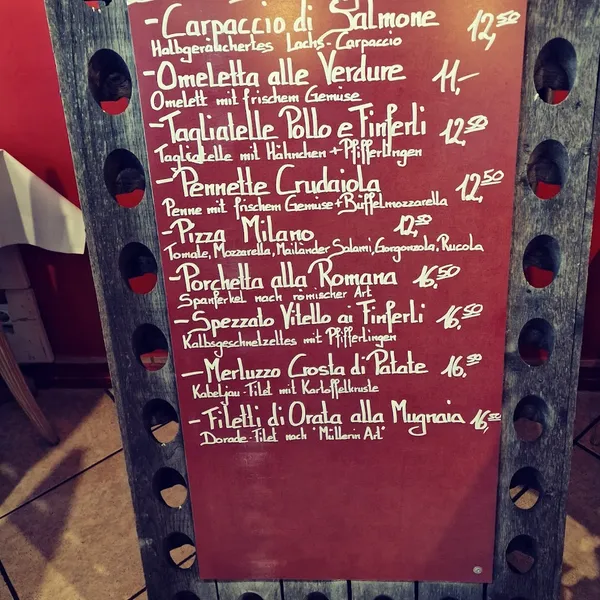 - Carpaccio di Salmone 12,50
Halbgeräuchertes Lachs-Carpaccio
- Omeletta alle Verdure 11,-
Omelett mit frischem Gemüse
- Tagliatelle Pollo e Finferli 12,50
Tagliatelle mit Hähnchen + Pfifferlingen
- Pennette Crudaiola 12,50
Penne mit frischem Gemüse + Büffelmozzarella
- Pizza Milano 12,50
Tomate, Mozzarella, Mailänder Salami, Gorgonzola, Rucola
- Porchetta alla Romana 16,50
Spanferkel nach römischer Art
- Spezzato Vitello ai Finferli 16,50
Kalbsgeschnetzeltes mit Pfifferlingen
- Merluzzo Crosta di Patate 16,50
Kabeljau-Filet mit Kartoffelkruste
- Filetti di Orata alla Mugnaia 16,50
Dorade-Filet nach "Müllerin Art"